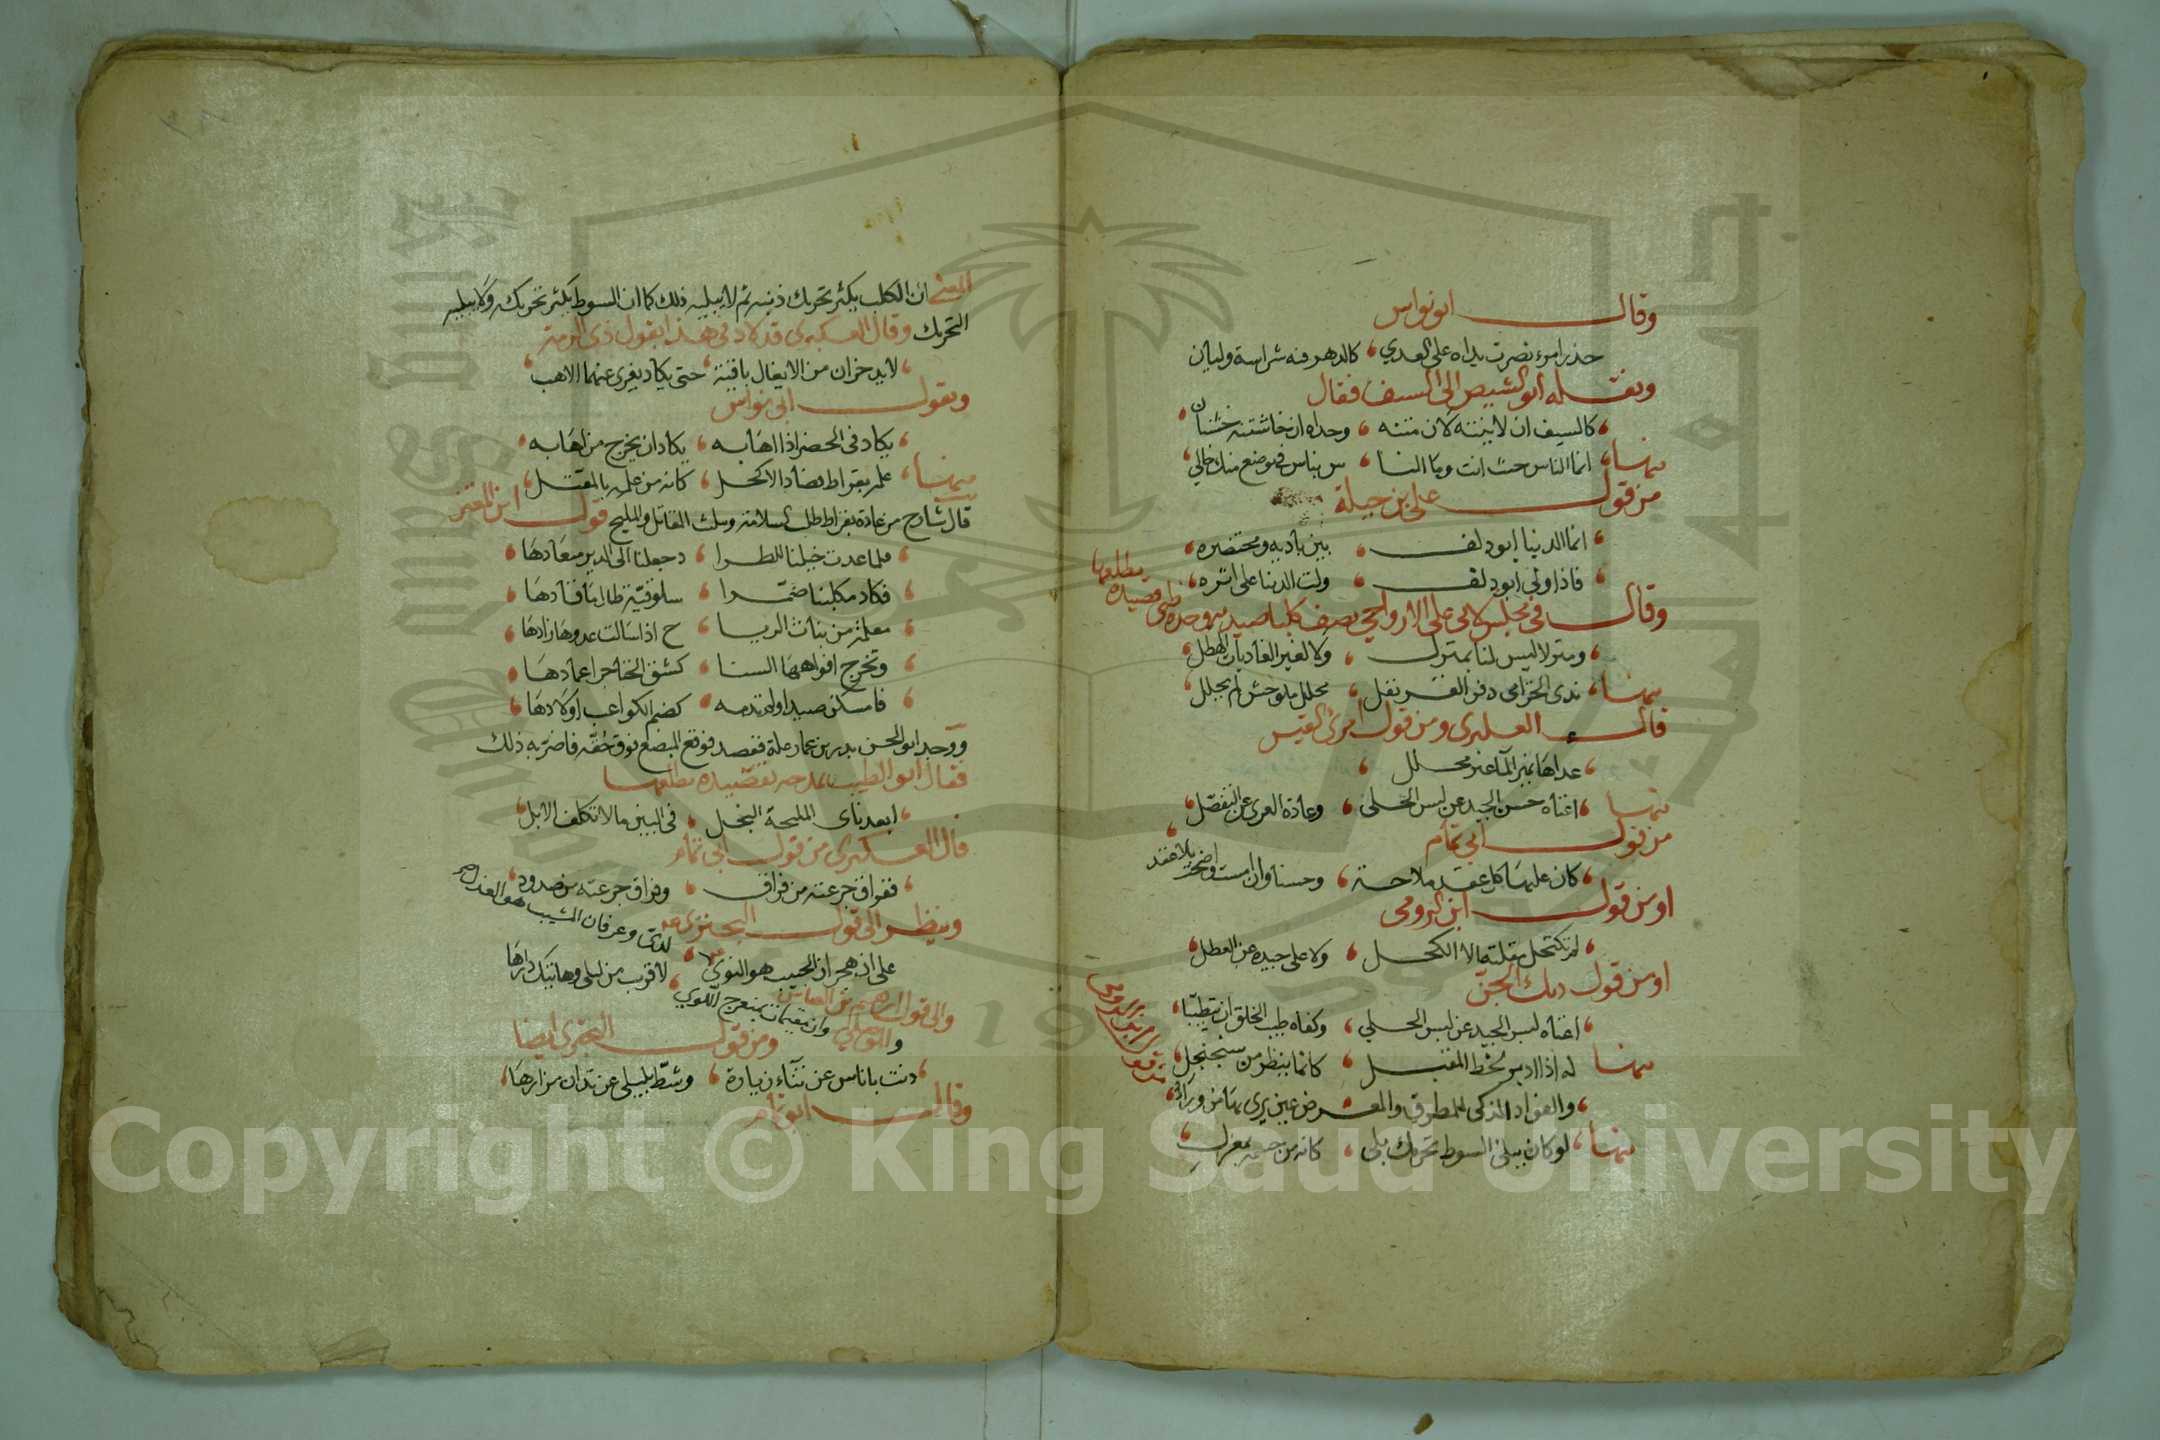 وقال ابو نواس
حذر امرء نصرت يداه على العدي كالدهر فيه شراسة وليان
ونقله ابو الشيص الى السيف فقال
كالسيف ان لاينته لان متنه وحداه ان خاشنته خشنان
ومنها انما الناس حيث انت وما النا س بناس في موضع منك خالي
من قول على بن جبلة
انما الدنيا ابو دلف بين باديه ومحتضره
فاذا ولى ابو دلف ولت الدنيا على اثره
وقال في مجلس ابى على الاوارجي يصف كلبا صيد به وحده ظبى قصيدة مطلعها
ومنزل ليس لنا بمنزل ولا لغير الغاديات الهطل
ومنها ندى الخزامى ذفر القرنفل محلل ملوحش لم يحلل
قال العكبرى ومن قول امرئ القيس
غذاها نمير الماء غير محلل
ومنها اغناه حسن الجيد عن لبس الحلى وعادة العرى عن التفضل
من قول ابى تمام
كان عليها كل عقد ملاحة وحسنا وان امست واضحت بلا عقد
او من قول ابن الرومى
لم تكتحل مقلته مالا الكحل ولا على جيده عن العطل
او من قول ديك الجن
اغناه لبس الجيد عن لبس الحلي وكفاه طيب الخلق ان يتطيبا
ومنها له اذا ادبر لحظ المقبل كانما ينظر من سجنجل
والفؤاد الذكى للمطرق والمعرض عين يرى بها من وراء
ومنها لو كان يبلى السوط تحريك بلى كانه من جسمه بمعزل
المعنى ان الكلب يكثر تحريك ذنبه ثم لا يبليه ذلك كما ان السوط يكثر تحريكه ولا يبليه
التحريك وقال العكبرى قد كاد في هذا بقول ذى الرمة
لا يدخران من الايغال باقية حتى يكاد يفرى عنهما الاهب
وبقول ابى نواس
يكاد في الحضر اذا اهابه يكاد ان يخرج من اهابه
ومنها علم بقراط فصاد الاكحل كانه من علمه بالمقتل
قال شارح من عادة بقراط طلب السلامة وسلب المقاتل والمليح قول ابن المعتز
فلما عدت خيلنا للطرا د جعلنا الى الدير ميعادها
فكاد مكلبنا ضمرا سلوقية طالما قادها
معلمة من بنات الريا ح اذا سالت عدوها زادها
وتخرج افواهها السنا كشق الخناجر اغمادها
فامسكن صيدا ولم تدمه كضم الكواعب اولادها
ووجد ابو الحسن بدر بن عمار علة ففصد فوقع المبضع فوق حقه فاضر به ذلك
فقال ابو الطيب يمدحه بقصيدة مطلعها
ابعد ناى المليحة البخل في البين مالا تكلف الابل
قال العكبرى من قول ابى تمام
ففراق جرعته من فراق وفراق جرعته من صدود
وينظر الى قول البحترى
على ان هجران الحبيب هو النوى لدى وعرفان المشيب هو العذل
والى قول ابراهيم بن العباس
وان مقيمات بمنعرج اللوي لاقرب من ليلى وهاتيك دارها
ومن قول البحترى ايضا
دنت باناس عن تناء زيارة وشط بليلى عن تدان مزارها
وقال ابو تمام